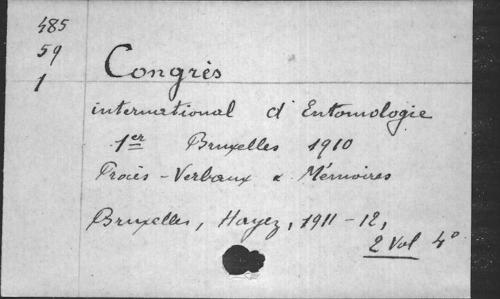 485
59
1
Congrès
international d'Entomologie
1er Bruxelles 1910
Procès-Verbaux & Mémoires
Bruxelles, Hayez, 1911-12,
2 Vol 4°